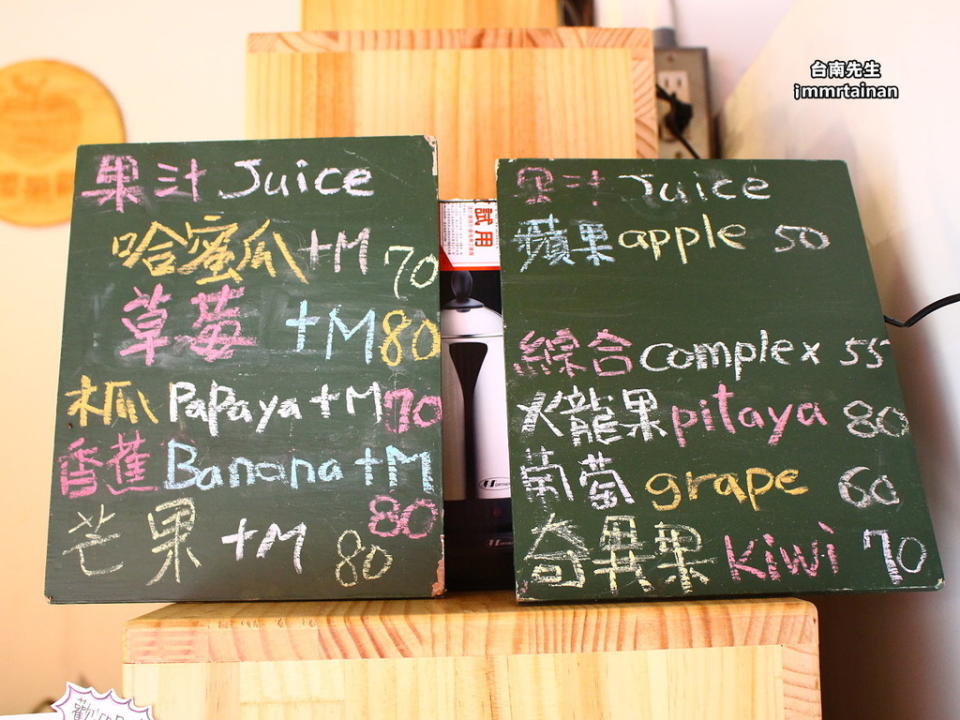 台南先生
jmmrtainan
果汁 Juice
哈蜜瓜+M 70
草莓 +M 80
木瓜 Papaya+M 70
香蕉 Banana+M
80
芒果 +M 80
試用
果汁 Juice
蘋果 apple 50
綜合 complex 55
火龍果 pitaya 80
葡萄 grape 60
奇異果 kiwi 70